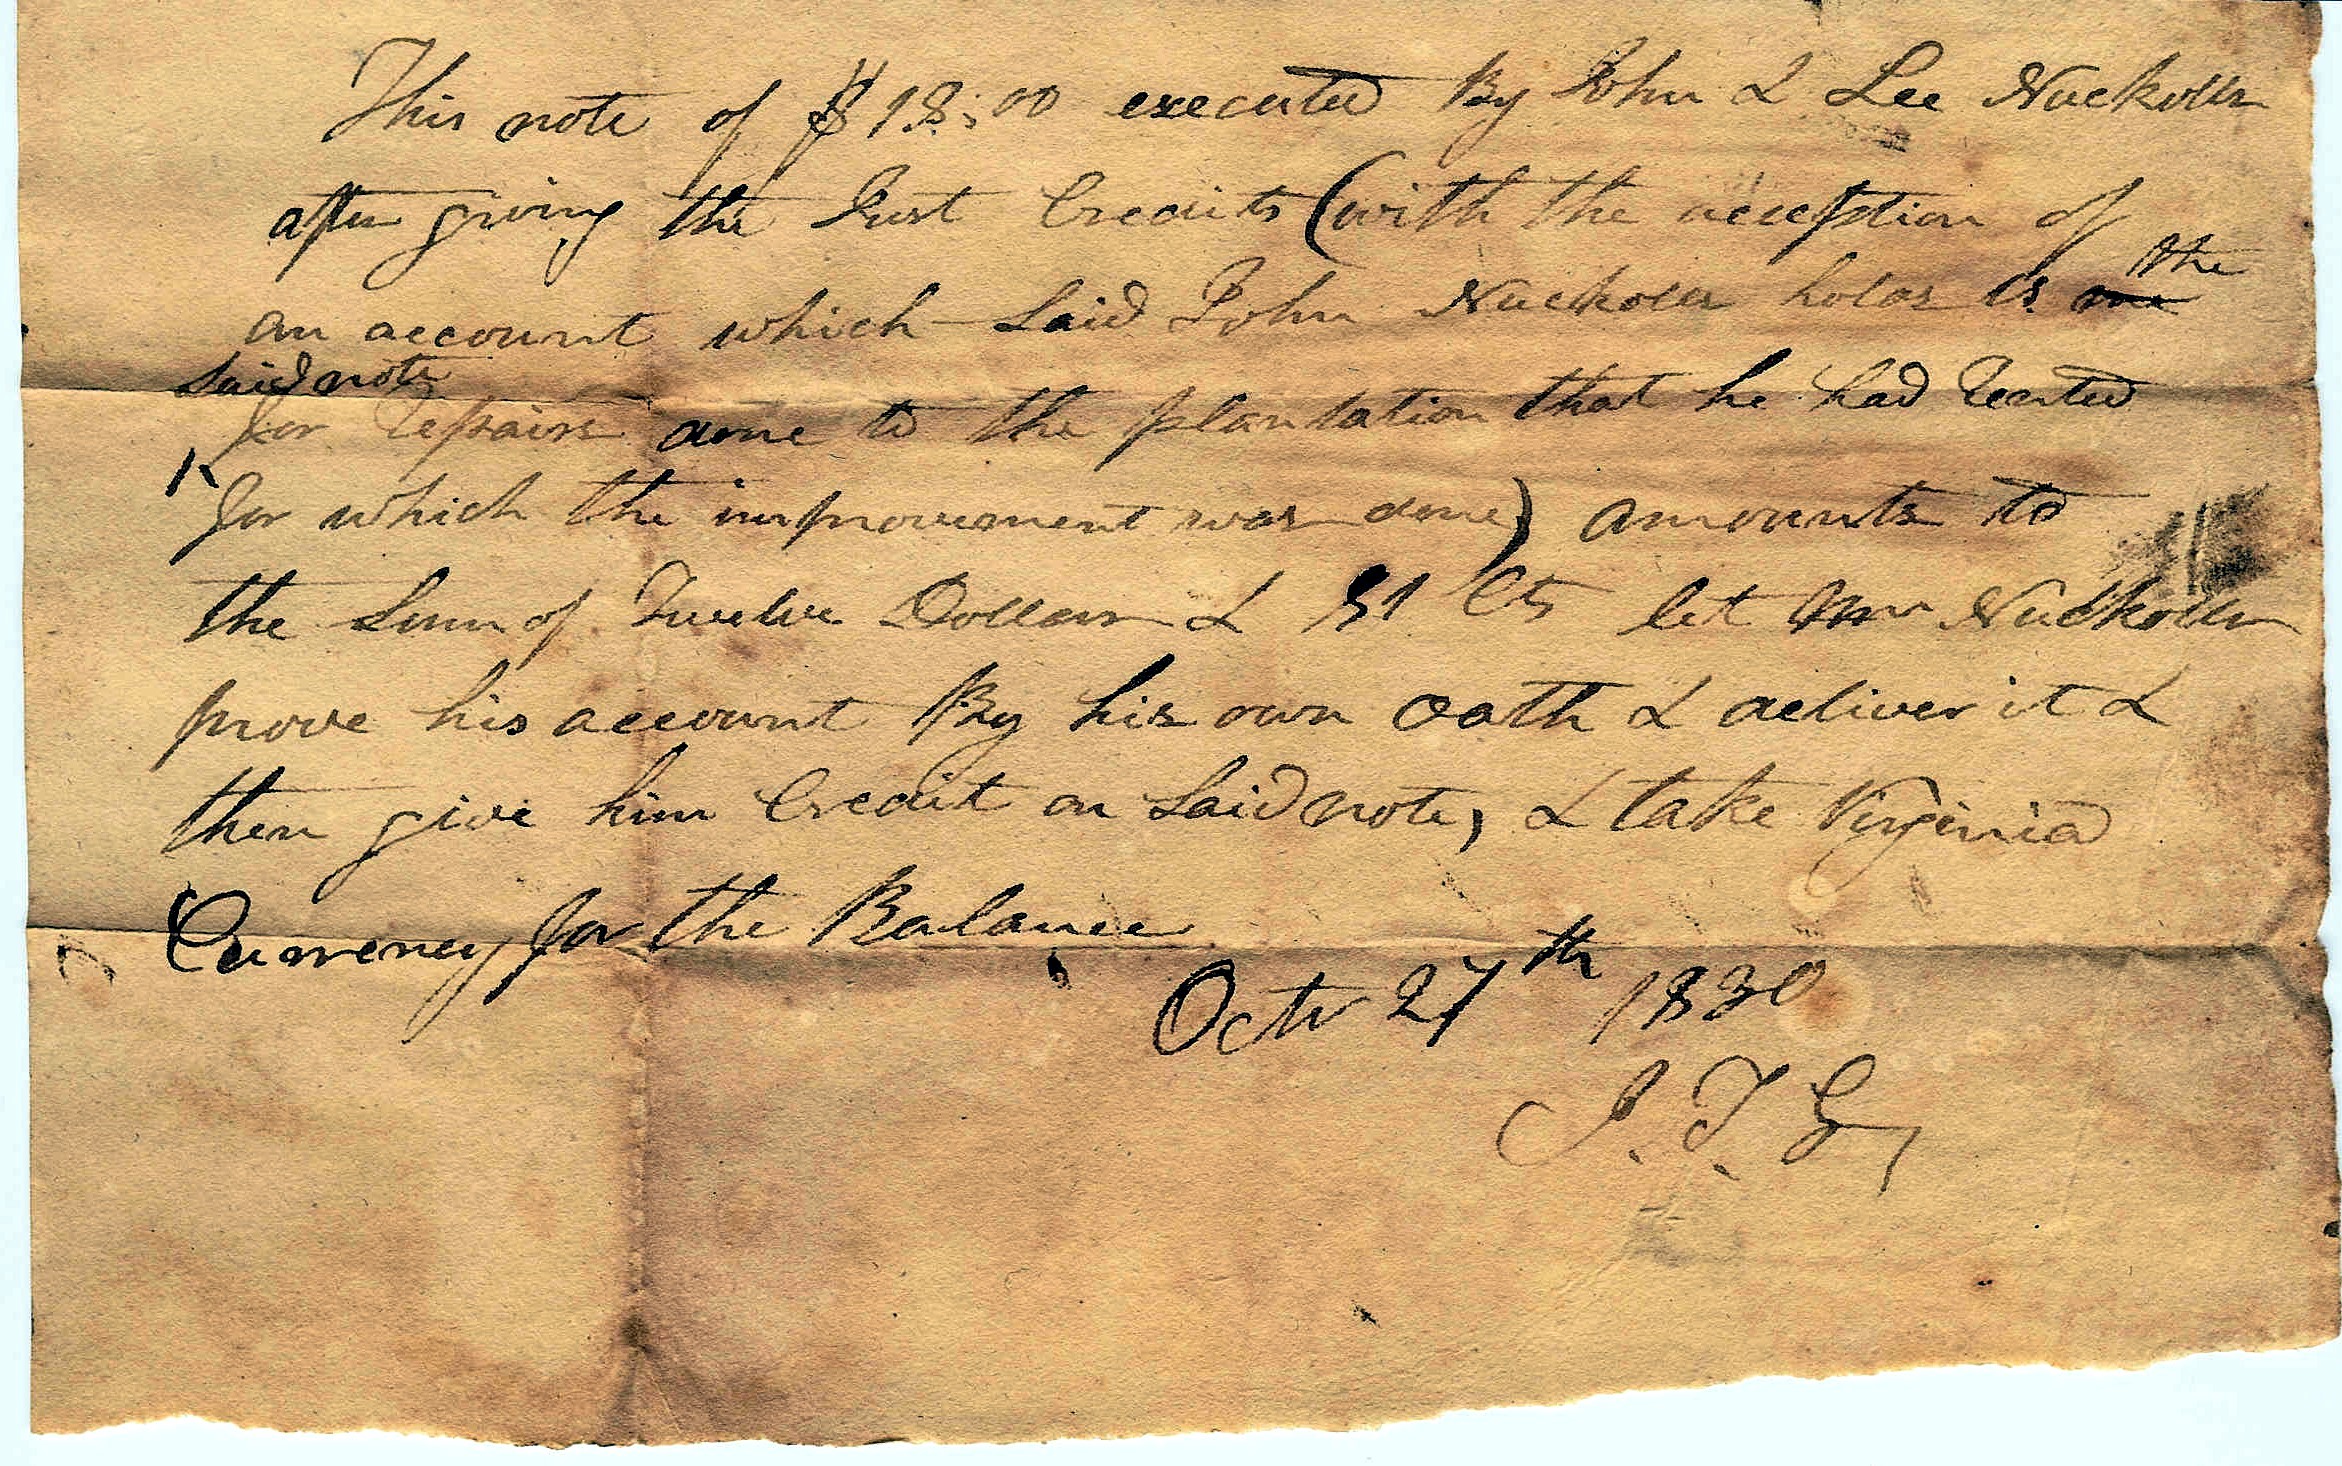 This note of $18:00 executed By John & Lee Nuckolls
after giving the Just Credits (with the acception of
an account which said John Nuckolls holds is the
said note
for Repairs done to the plantation that he had Rented
for which the improvement was done) amounts to
the Sum of Twelve Dollars & 31 Cts let Mr Nuckolls
prove his account By his own oath & deliver it &
then give him Credit on said note, & take Virginia
Currency for the Balance
Octr 27th 1830
J. T. G